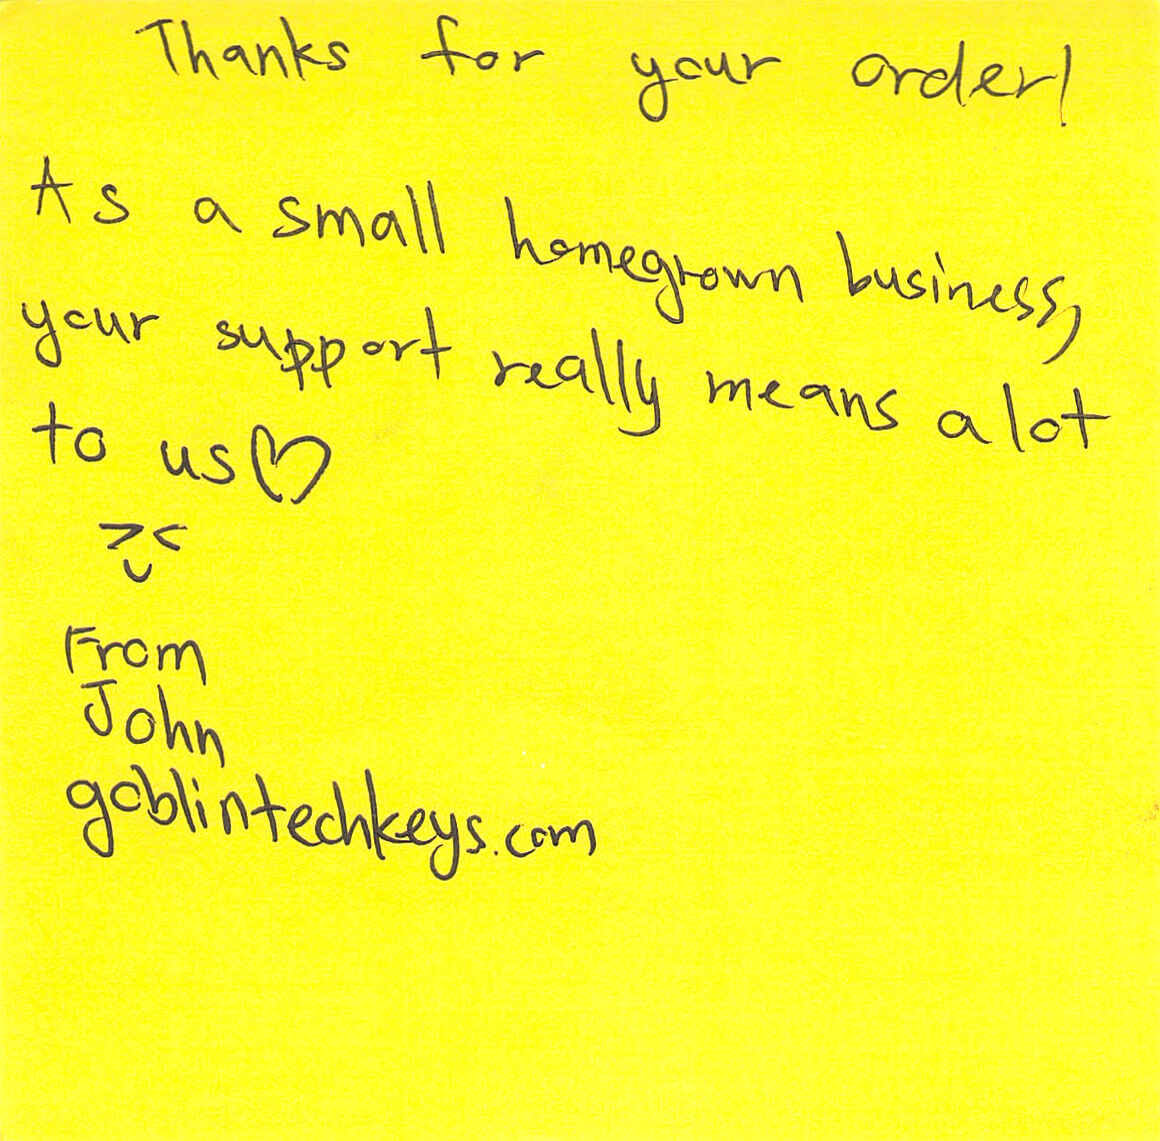 Thanks for your order!
As a small homegrown business,
your support really means a lot
to us♡
><
From
John
goblintechkeys.com